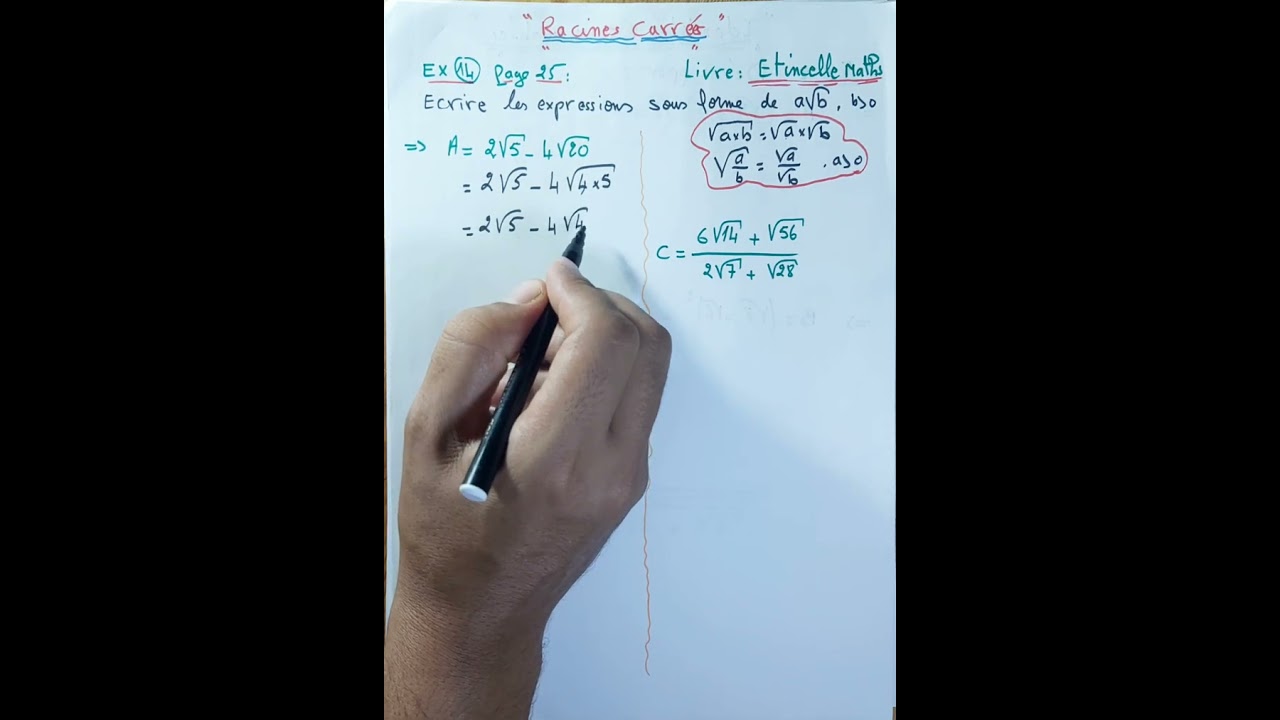 " Racines Carrés "
Ex 14 page 25 :
Livre : Etincelle Maths
Ecrire les expressions sous forme de a√b , b>0
=> A = 2√5 - 4√20
= 2√5 - 4√4×5
= 2√5 - 4√4
√a×b = √a × √b
√a/b = √a/√b , a>0
C = 6√14 + √56 / 2√7 + √28